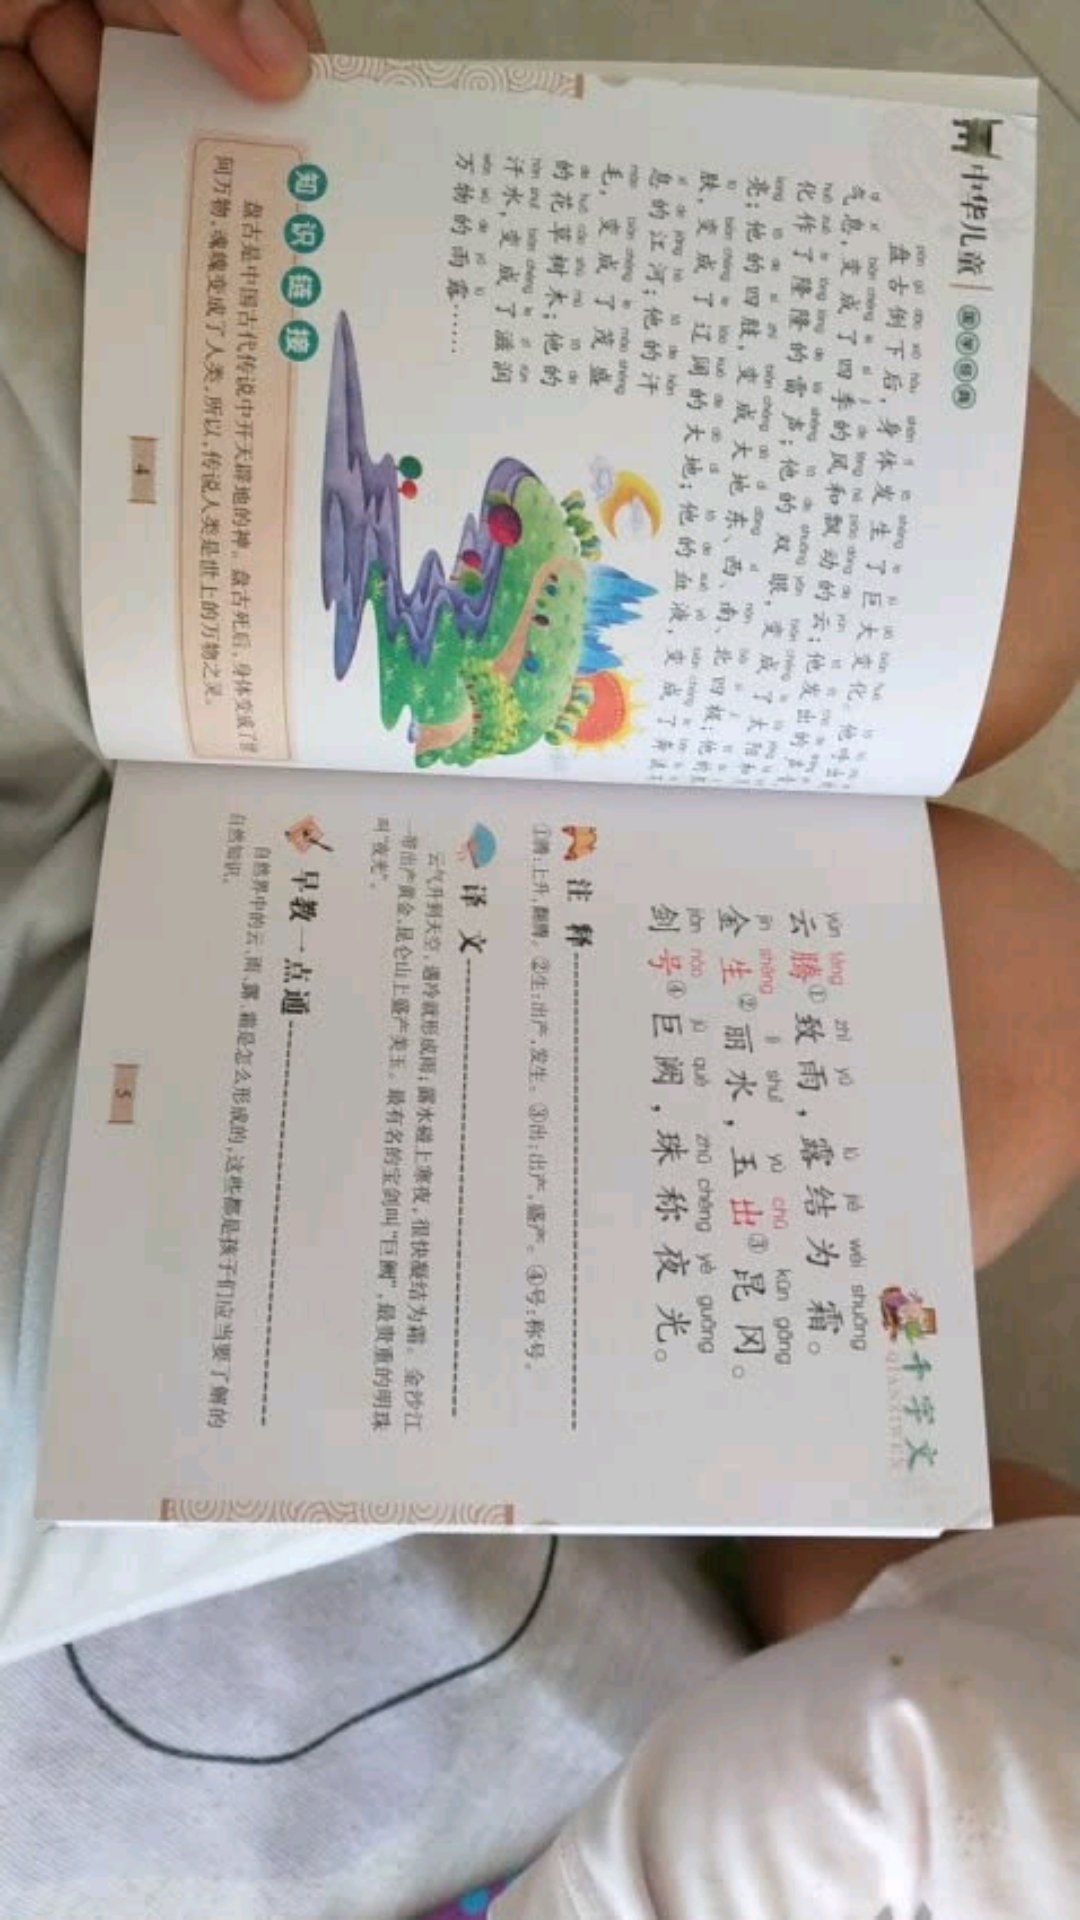 中华儿童 国学经典
pán gǔ dǎo xià hòu
盘古倒下后，身体发生了巨大变化。他呼出
气息，变成了四季的风和飘动的云；他发出的声音
化作了隆隆的雷声；他的双眼，变成了太阳和
亮；他的四肢，变成大地东、西、南、北四极；他的
肤，变成了辽阔的大地；他的血液，变成了奔流
息的江河；他的汗
毛，变成了茂盛
的花草树木；他的
汗水，变成了滋润
万物的雨露……
知识链接
盘古是中国古代传说中开天辟地的神。盘古死后，身体变成了世
间万物，魂魄变成了人类，所以，传说人类是世上的万物之灵。
4
千字文
QIANZIWEN
yún téng zhì yǔ lù jié wéi shuāng
云腾①致雨，露结为霜。
jīn shēng lì shuǐ yù chū kūn gāng
金生②丽水，玉出③昆冈。
jiàn hào jù què zhū chēng yè guāng
剑号④巨阙，珠称夜光。
注释
①腾：上升，翻腾。②生：出产，发生。③出：出产，盛产。④号：称号。
译文
云气升到天空，遇冷就形成雨；露水碰上寒夜，很快凝结为霜。金沙江
一带出产黄金，昆仑山上盛产美玉。最有名的宝剑叫“巨阙”，最贵重的明珠
叫“夜光”。
早教一点通
自然界中的云、雨、露、霜是怎么形成的，这些都是孩子们应当要了解的
自然知识。
5